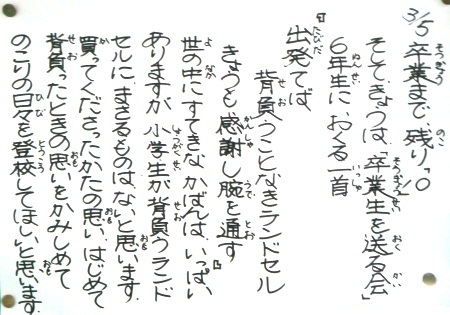 3/5 卒業まで、残り10
そしてきょうは、「卒業生を送る会」
6年生に、おくる一首
『出発てば
背負うことなきランドセル
きょうも感謝し腕を通す』
世の中にすてきな、かばんは、いっぱい
ありますが、小学生が背負うランド
セルに、まさるものは、ないと思います。
買ってくださったかたの思い、はじめて
背負ったときの思いをかみしめて
のこりの日々を登校してほしいと思います。